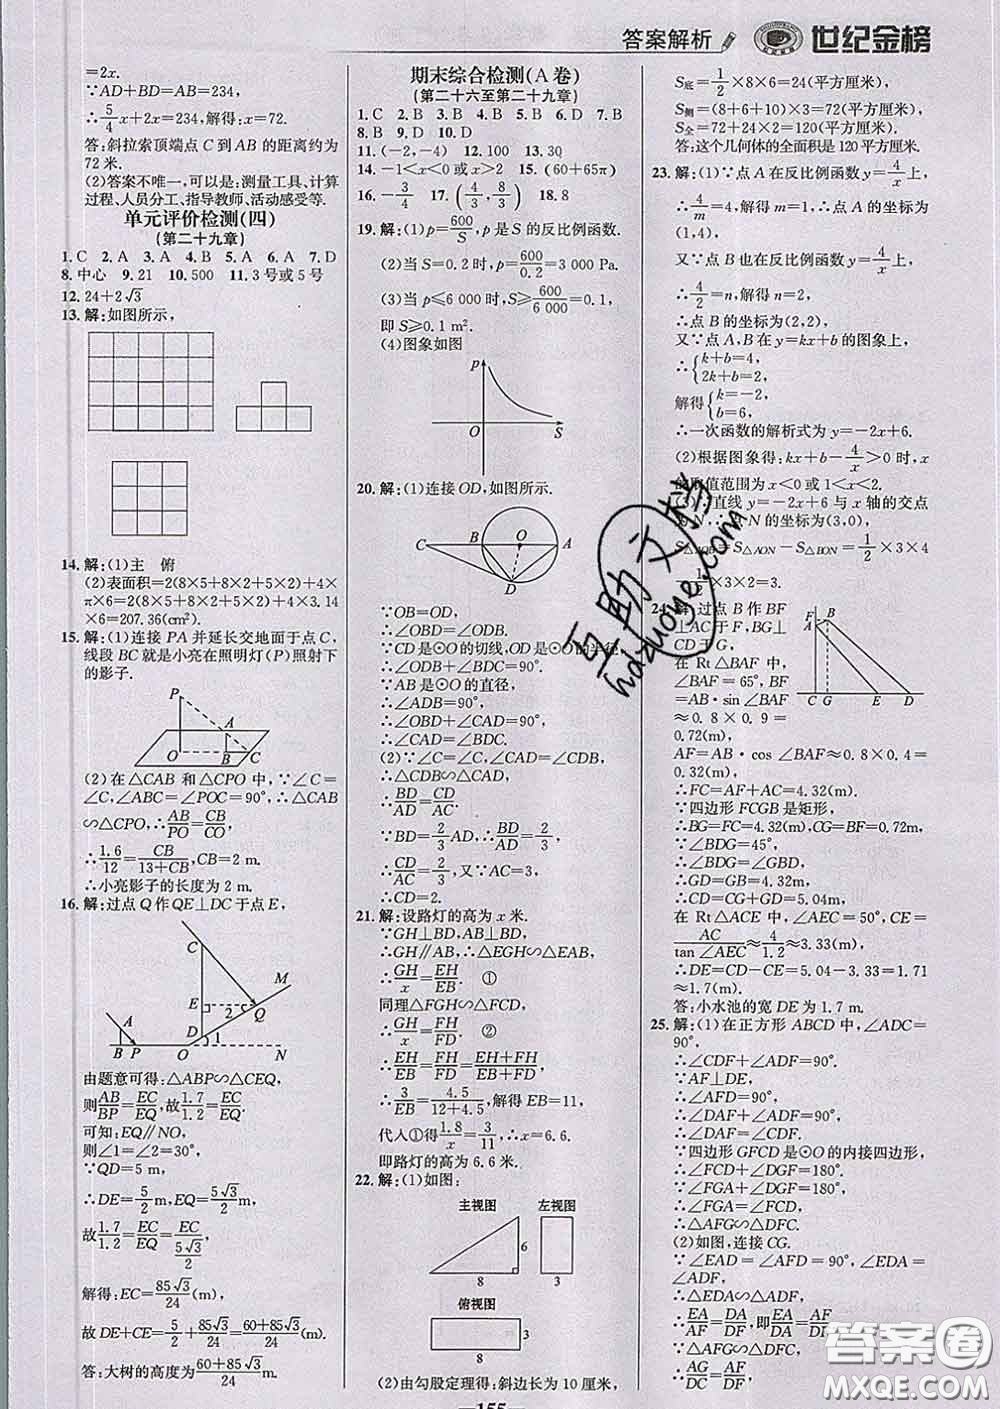 答案解析 世纪金榜
=2x.
∵AD+BD=AB=234,
∴5/4 x+2x=234,解得:x=72.
答:斜拉索顶端点 C 到 AB 的距离约为
72 米.
(2)答案不唯一,可以是:测量工具、计算
过程、人员分工、指导教师、活动感受等.
单元评价检测(四)
(第二十九章)
1.C 2.A 3.A 4.B 5.A 6.A 7.D
8.中心 9.21 10.500 11.3 号或 5 号
12.24+2√3
13.解:如图所示,
14.解:(1)主 俯
(2)表面积=2(8×5+8×2+5×2)+4×
π×6=2(8×5+8×2+5×2)+4×3.14
×6=207.36(cm²).
15.解:(1)连接 PA 并延长交地面于点 C,
线段 BC 就是小亮在照明灯(P)照射下
的影子.
P
A
O B C
(2)在△CAB 和△CPO 中,∵∠C=
∠C,∠ABC=∠POC=90°,∴△CAB
∽△CPO,∴AB/PO=CB/CO,
∴1.6/12=CB/(13+CB),CB=2 m.
∴小亮影子的长度为 2 m.
16.解:过点 Q 作 QE⊥DC 于点 E,
C
M
E 2 Q
A D 1
B P O N
由题意可得:△ABP∽△CEQ,
则AB/BP=EC/EQ,故1.7/1.2=EC/EQ,
可知:EQ∥NO,
则∠1=∠2=30°,
∵QD=5 m,
∴DE=5/2 m,EQ=5√3/2 m,
故1.7/1.2=EC/EQ=EC/(5√3/2),
解得:EC=85√3/24(m),
故 DE+CE=5/2+85√3/24=(60+85√3)/24(m).
答:大树的高度为(60+85√3)/24(m).
期末综合检测(A 卷)
(第二十六至第二十九章)
1.C 2.B 3.B 4.B 5.B 6.D 7.B
8.B 9.D 10.D
11.(-2,-4) 12.100 13.30
14.-1<x<0 或 x>2 15.(60+65π)
16.-3/4 17.(4/3,8/3) 18.8
19.解:(1)p=600/S,p 是 S 的反比例函数.
(2)当 S=0.2 时,p=600/0.2=3000 Pa.
(3)当 p≤6 000 时,S≥600/6 000=0.1,
即 S≥0.1 m².
(4)图象如图
p
O S
20.解:(1)连接 OD,如图所示.
C B O A
D
∵OB=OD,
∴∠OBD=∠ODB.
∵CD 是⊙O 的切线,OD 是⊙O 的半径,
∴∠ODB+∠BDC=90°.
∵AB 是⊙O 的直径,
∴∠ADB=90°,
∴∠OBD+∠CAD=90°,
∴∠CAD=∠BDC.
(2)∵∠C=∠C,∠CAD=∠BDC,
∴△CDB∽△CAD,
∴BD/AD=CD/AC.
∵BD=2/3 AD,∴BD/AD=2/3,
∴CD/AC=2/3,又∵AC=3,
∴CD=2.
21.解:设路灯的高为 x 米.
∵GH⊥BD,AB⊥BD,
∴GH∥AB,∴△EGH∽△EAB,
∴GH/x=EH/EB ①
同理△FGH∽△FCD,
∴GH/x=FH/FD ②
∴EH/EB=FH/FD=(EH+FH)/(EB+FD)
∴3/EB=4.5/(12+4.5),解得 EB=11,
代入①得1.8/x=3/11,∴x=6.6.
即路灯的高为 6.6 米.
22.解:(1)如图:
主视图 左视图
6
8 3
俯视图
3
8
(2)由勾股定理得:斜边长为 10 厘米,
S底=1/2×8×6=24(平方厘米),
S侧=(8+6+10)×3=72(平方厘米),
S全=72+24×2=120(平方厘米).
答:这个几何体的全面积是 120 平方厘米.
23.解:(1)∵点 A 在反比例函数 y=4/x 上,
∴4/m=4,解得 m=1,∴点 A 的坐标为
(1,4),
又∵点 B 也在反比例函数 y=4/x 上,
∴4/2=n,解得 n=2,
∴点 B 的坐标为(2,2),
又∵点 A,B 在 y=kx+b 的图象上,
∴{k+b=4,
2k+b=2,
解得{k=-2,
b=6,
∴一次函数的解析式为 y=-2x+6.
(2)根据图象得:kx+b-4/x>0 时,x
的取值范围为 x<0 或 1<x<2.
(3)∵直线 y=-2x+6 与 x 轴的交点
N 的坐标为(3,0),
S△AOB=S△AON-S△BON=1/2×3×4
-1/2×3×2=3.
24.解:过点 B 作 BF
⊥AC 于 F,BG⊥
CD 于 G,
在 Rt△BAF 中,
∠BAF=65°,BF
=AB·sin∠BAF
≈0.8×0.9=
0.72(m),
B
F
A
C G E D
AF=AB·cos∠BAF≈0.8×0.4=
0.32(m),
∴FC=AF+AC=4.32(m).
∵四边形 FCGB 是矩形,
∴BG=FC=4.32(m),CG=BF=0.72m.
∵∠BDG=45°,
∴∠BDG=∠GBD,
∴GD=GB=4.32m,
∴CD=CG+GD=5.04m,
在 Rt△ACE 中,∠AEC=50°,CE=
AC/tan∠AEC≈4.2/1.2≈3.33(m),
∴DE=CD-CE=5.04-3.33=1.71
≈1.7(m).
答:小水池的宽 DE 为 1.7 m.
25.解:(1)在正方形 ABCD 中,∠ADC=
90°,
∴∠CDF+∠ADF=90°.
∵AF⊥DE,
∴∠AFD=90°,
∴∠DAF+∠ADF=90°,
∴∠DAF=∠CDF.
∵四边形 GFCD 是⊙O 的内接四边形,
∴∠FCD+∠DGF=180°.
∵∠FGA+∠DGF=180°,
∴∠FGA=∠FCD,
∴△AFG∽△DFC.
(2)如图,连接 CG.
∵∠EAD=∠AFD=90°,∠EDA=
∠ADF,
∴△EDA∽△ADF,
∴EA/AF=DA/DF,即EA/DA=AF/DF
∴△AFG∽△DFC,
∴AG/DC=FA/FD,
互助文档
hdzuoye.com
答案圈
MXQE.COM
—155—